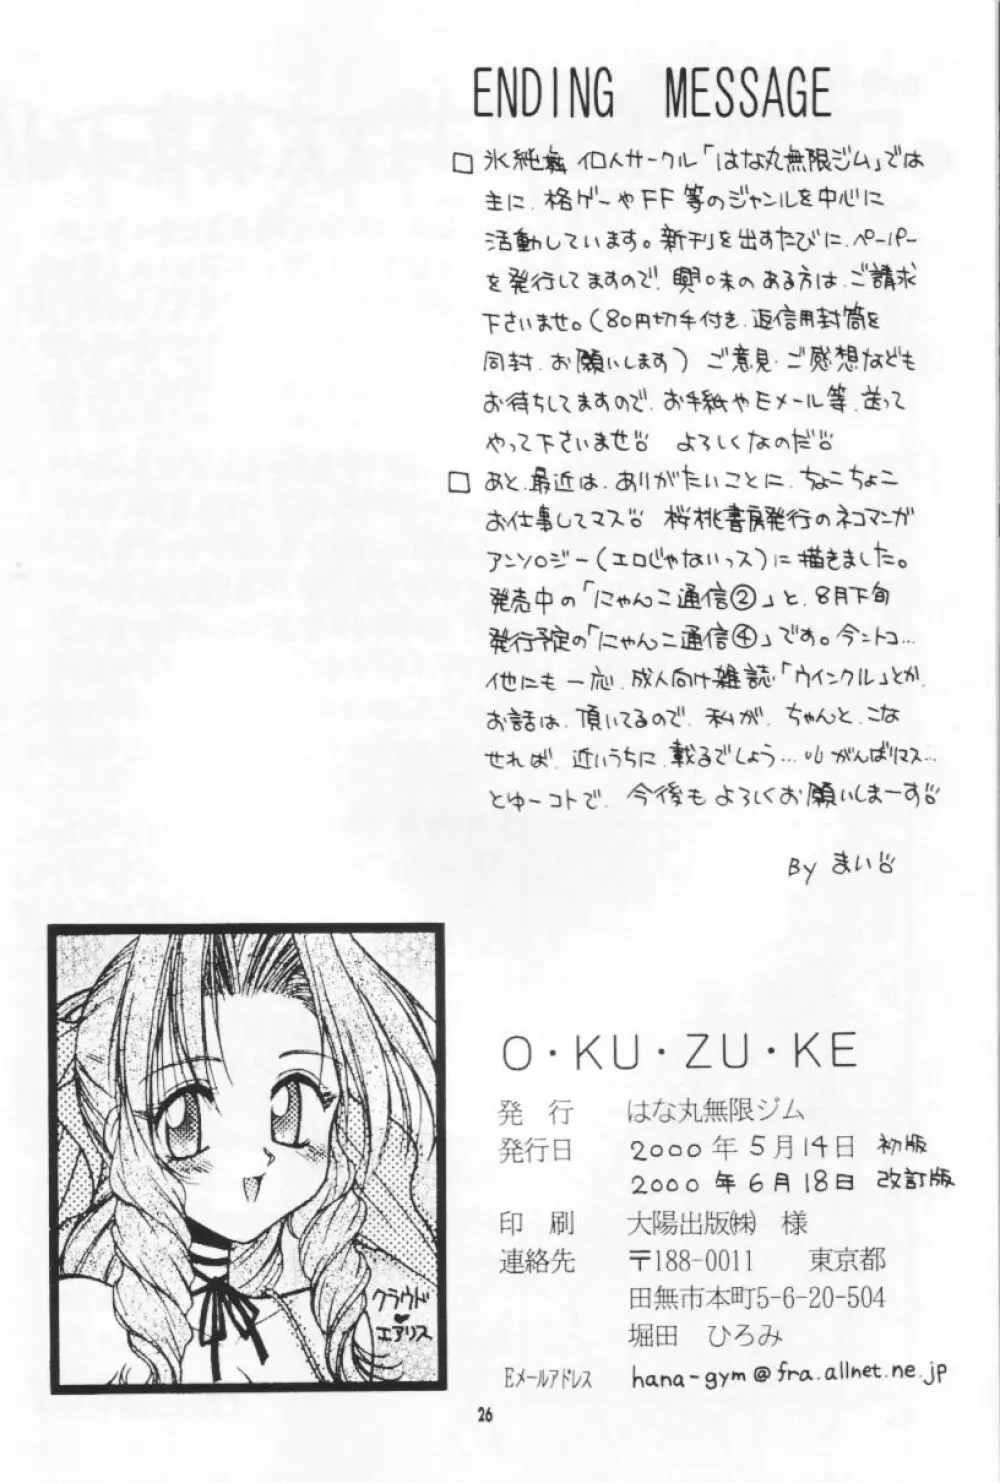 ENDING MESSAGE
□ 氷純 個人サークル「はな丸無限ジム」では
主に、格ゲーやFF等のジャンルを中心に
活動しています。新刊を出すたびに、ペーパー
を発行してますので、興味のある方は、ご請求
下さいませ。(80円切手付き、返信用封筒を
同封、お願いします) ご意見・ご感想なども
お待ちしてますので、お手紙やEメール等、送って
やって下さいませ よろしくなのだ
□ あと、最近は、ありがたいことに、ちょこちょこ
お仕事してマス 桜桃書房発行のネコマンガ
アンソロジー(エロじゃないっス)に描きました。
発売中の「にゃんこ通信②」と、8月下旬
発行予定の「にゃんこ通信④」です。今ントコ…
他にも一応、成人向け雑誌「ウインクル」とか、
お話は、頂いてるので、私が、ちゃんと、こな
せれば、近いうちに、載るでしょう… がんばりマス…
とゆーコトで、今後もよろしくお願いしまーす
By まい
クラウド
♥
エアリス
O・KU・ZU・KE
発 行 はな丸無限ジム
発行日 2000年5月14日 初版
2000年6月18日 改訂版
印 刷 大陽出版㈱ 様
連絡先 〒188-0011 東京都
田無市本町5-6-20-504
堀田 ひろみ
Eメールアドレス hana-gym@fra.allnet.ne.jp
26